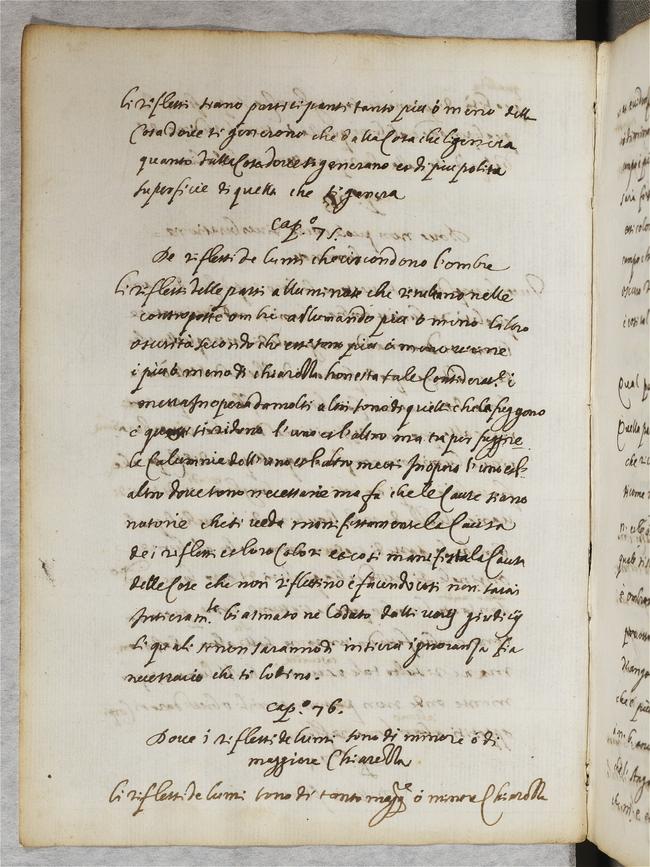 li riflessi siano participanti tanto piu ò meno della
Cosa doue si generono che dalla Cosa che li genera
quanto dalla Cosa doue si generano è di piu polita
superficie di quella che si genera
cap.º 75.
De riflessi de lumi che circondono l'ombre
li riflessi delle parti alluminate che risultano nelle
contraposte ombre allumando piu ò meno la loro
oscurità secondo che essi sono piu ò meno uicine
i piu ò meno di chiarezza honesta tale Considerat.e è
messa In opera da molti altri sono di quelli che la fuggono
e questi si ridono l'uno e l'altro ma tu per fuggire
le Calumnie dell'uno e l'altro metti In opera l'uno e l'
altro doue sono necessarie ma fa che le Cause siano
notorie che si ueda manifestamente la Causa
de i riflessi e loro Colori e cosi manifesta la Causa
delle Cose che non riflettino e facendo cosi non sarai
Interam.te biasmato ne lodato dalli uarij giudicij
li quali se non saranno di intiera ignoranza fia
necessario che ti lodino.
cap.º 76.
Doue i riflessi de lumi sono di minore ò di
maggiore Chiarezza
li riflessi de lumi sono di tanto magg.re ò minore Chiarezza